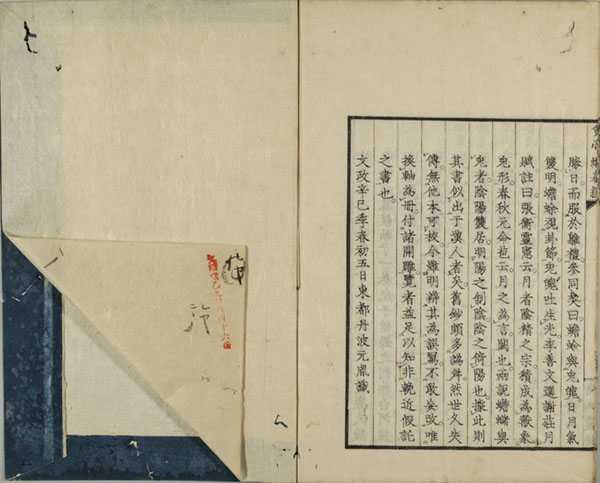 勝日而服於鵻禮參同契曰蟾蜍與兔魄日月氣
雙明蟾蜍視卦節兔魄吐生光李善文選謝莊月
賦註曰張衡靈憲云月者陰精之宗積成為獸象
兔形春秋元命苞云月之為言闕也兩說蟾蠩與
兔者陰陽雙居明陽之制陰陰之倚陽也據此則
其書似出于漢人者矣舊鈔頗多譌舛然世久失
傳無他本可挍今雖明辨其為誤寫不敢妄改唯
換軸為冊付諸開雕覽者益足以知非輓近假託
之書也
文政辛巳季春初五日東都丹波元胤識